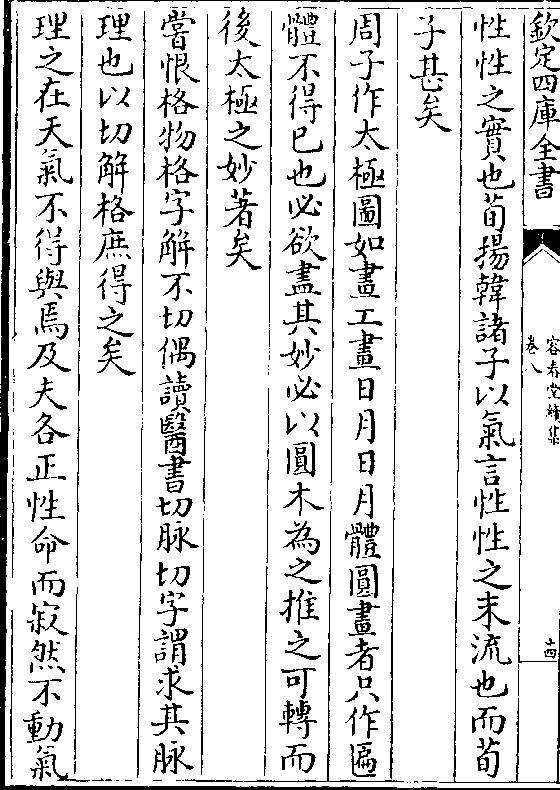 欽定四庫全書
容春堂續集
卷八
十四
性性之實也荀揚韓諸子以氣言性性之末流也而荀
子甚矣
周子作太極圖如畫工畫日月日月體圓畫者只作匾
體不得已也必欲盡其妙必以圓木為之推之可轉而
後太極之妙著矣
嘗恨格物格字解不切偶讀醫書切脉切字謂求其脉
理也以切解格庶得之矣
理之在天氣不得與焉及夫各正性命而寂然不動氣